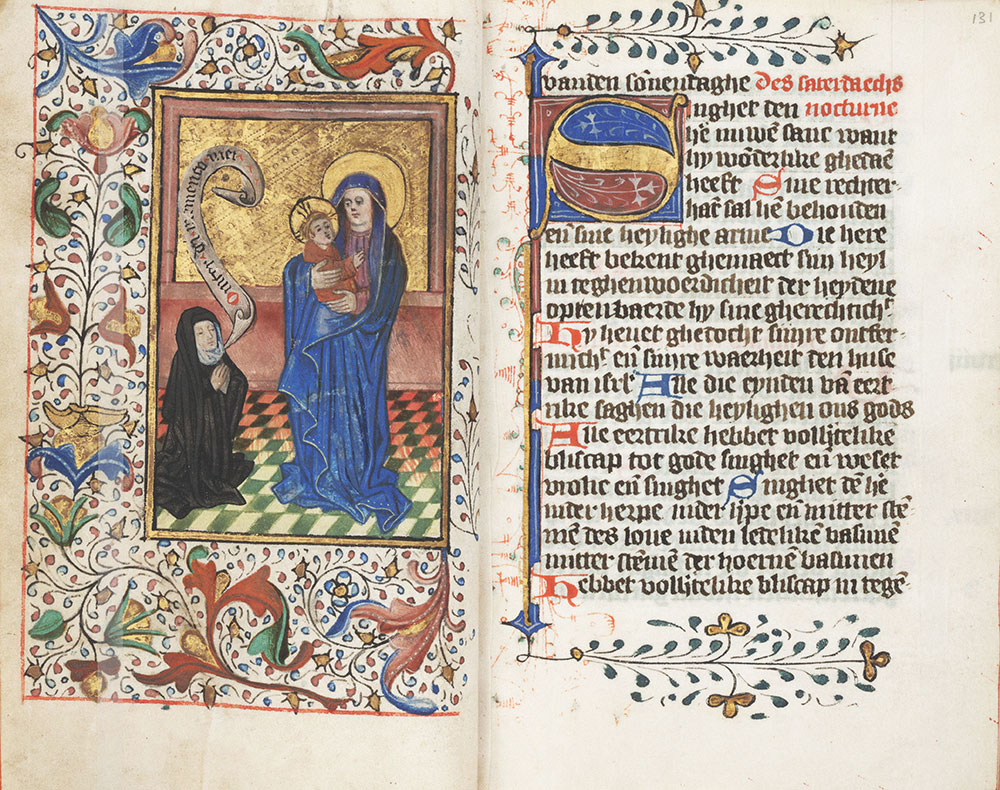 O mater dei memento mei
131
vanden sonnendaghe Des saterdaechs
Singhet den nocturne
hē nuwē sanc want
hy wōderlike ghedaen
heeft Sine rechter-
hāt sal hē behouden
eñ sine heylighe arme Die here
heeft bekent ghemaect sijn heyl
in teghenwoerdicheit der heydene
openbaerde hy sine gherechtichͭ
Hy hevet ghedocht sijnre ontfer-
nichͭ eñ sijnre waerheit den huse
van isrͭl Alle die eynden vā eert
rike saghen die heylighen ons gods
Alle eertrike hebbet vollijtelike
bliscap tot gode singhet eñ weset
vrolic eñ singhet Singhet dē hē
inder herpe inder eñ mitter stē
mē des love inden basunē
mitter stemmē der hoernē basunen
Hebbet vollijtelike bliscap in tegē